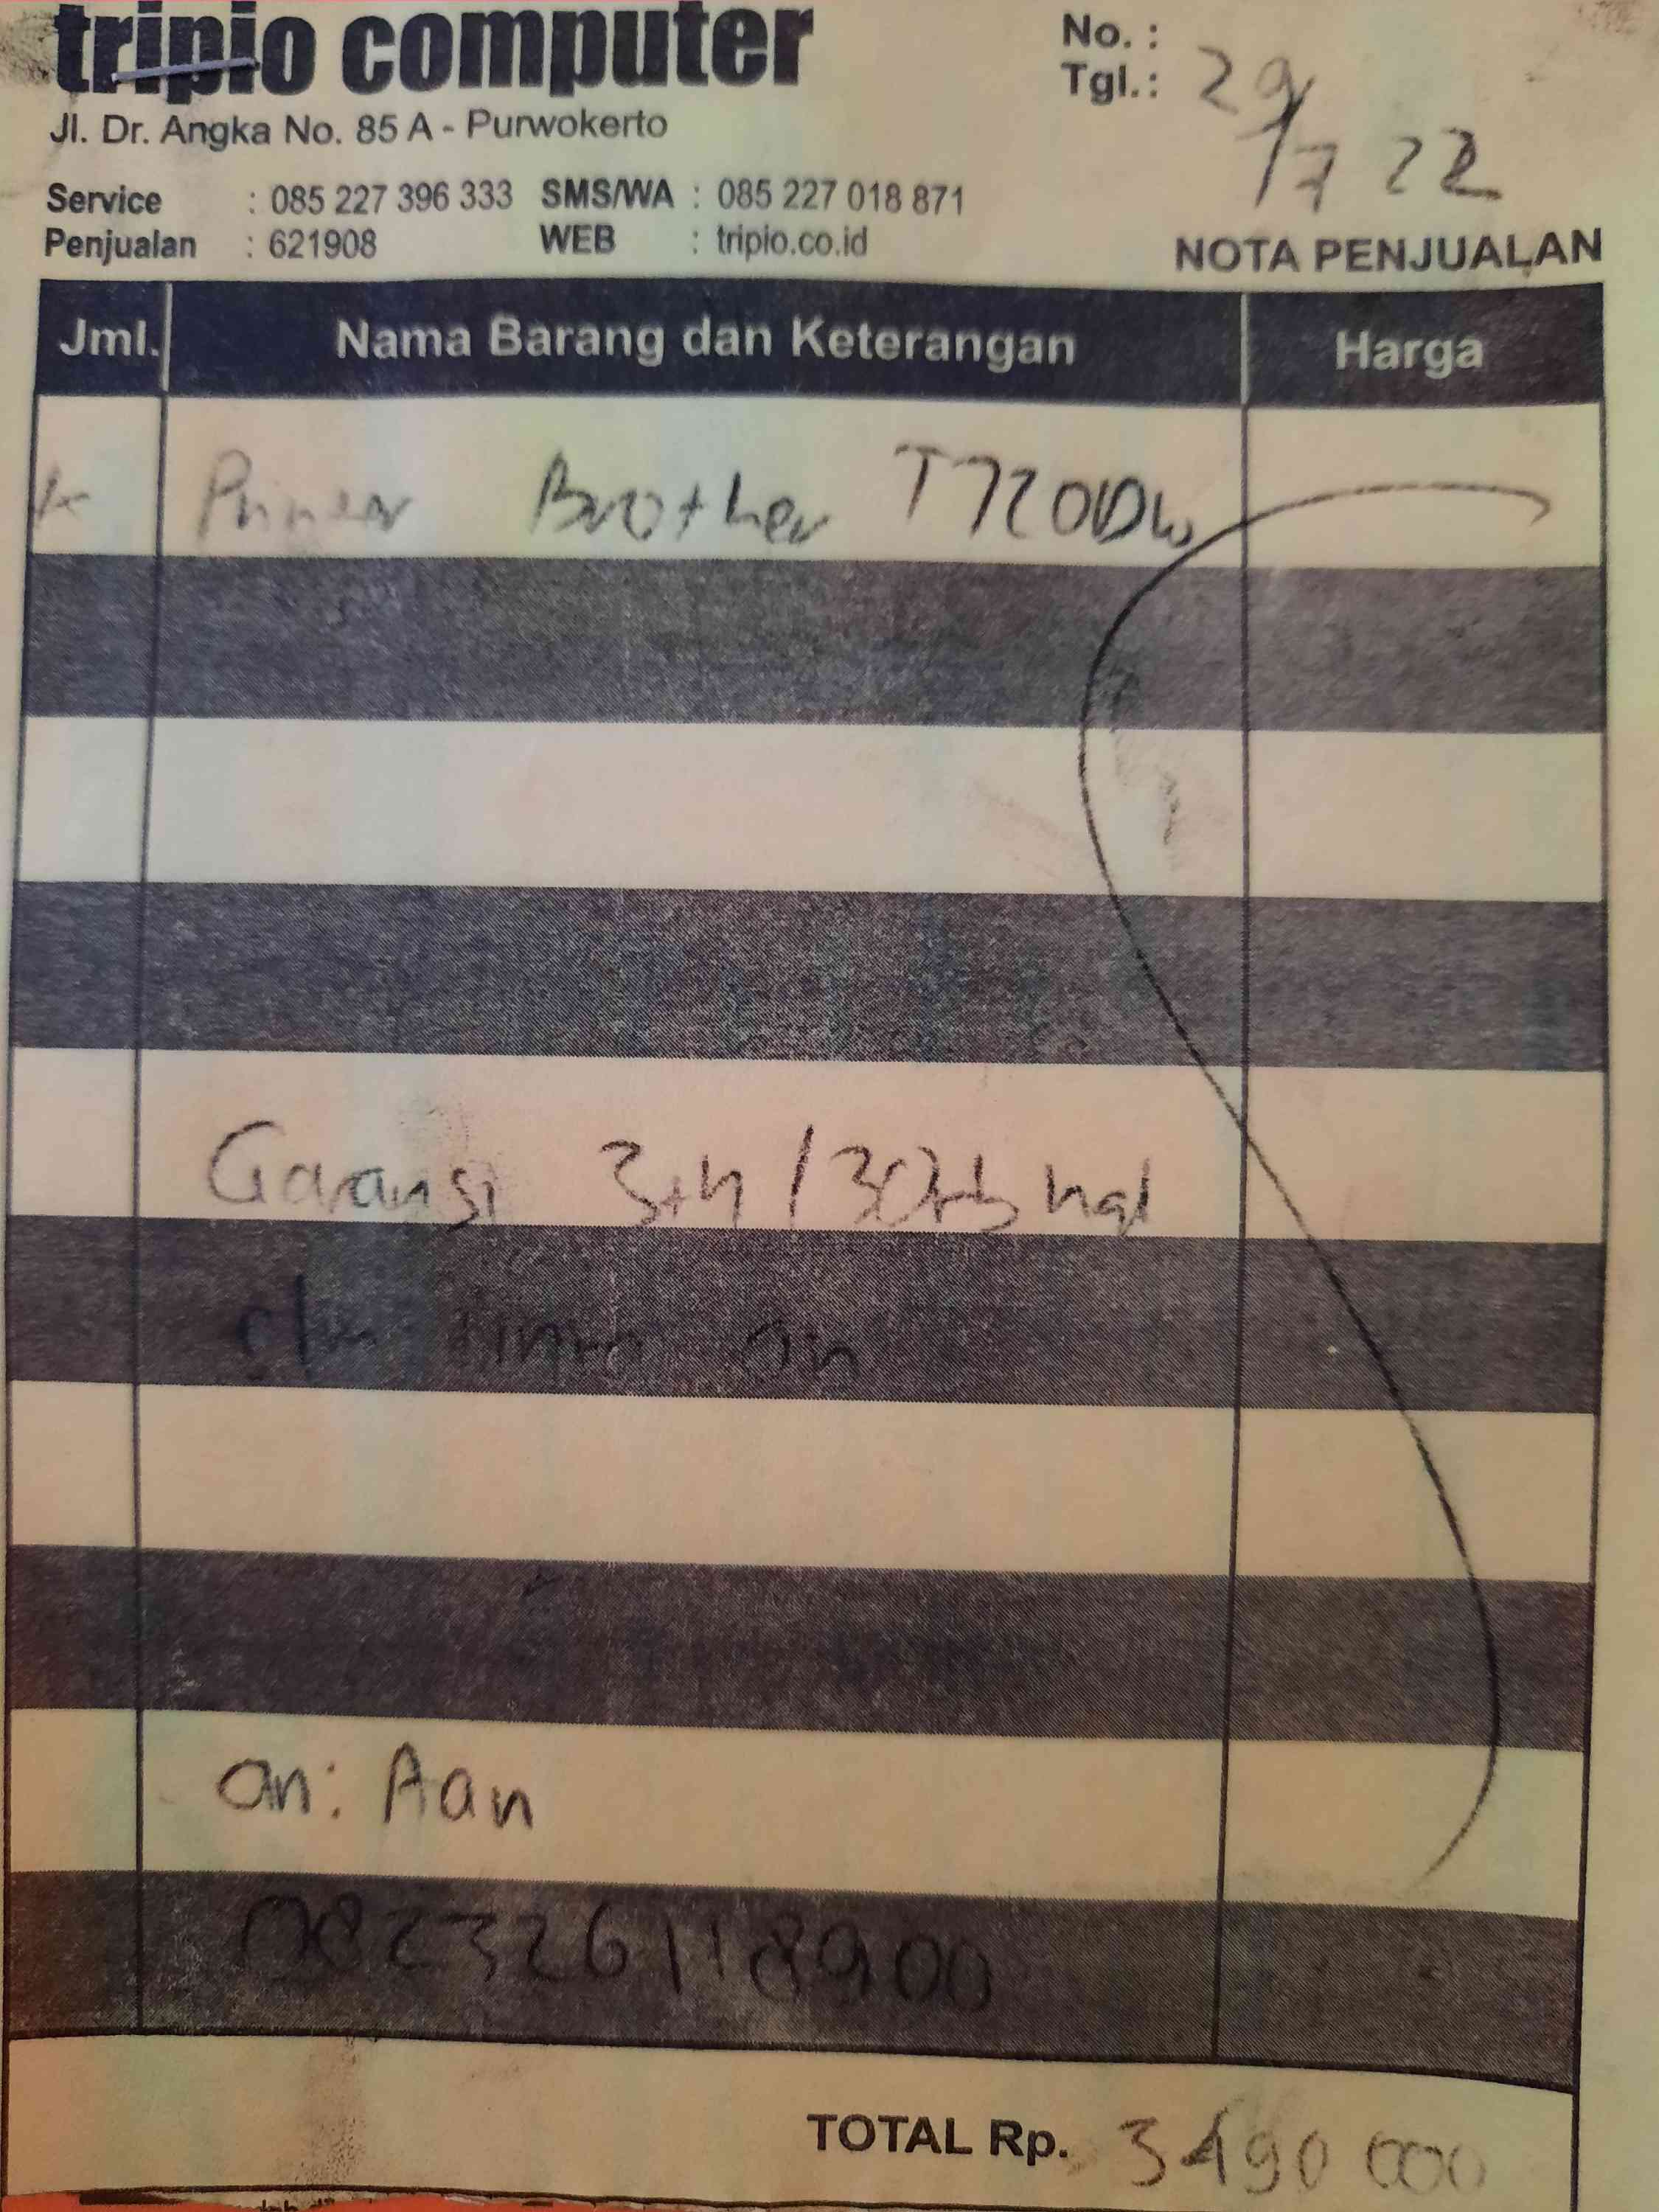 tripio computer
No. :
Tgl.: 29/7 22
Jl. Dr. Angka No. 85 A - Purwokerto
Service : 085 227 396 333 SMS/WA : 085 227 018 871
Penjualan : 621908 WEB : tripio.co.id
NOTA PENJUALAN
Jml. Nama Barang dan Keterangan Harga
Printer Brother T720DW
Garansi 3th / 30rb hal
an: Aan
082326118900
TOTAL Rp. 3490 000